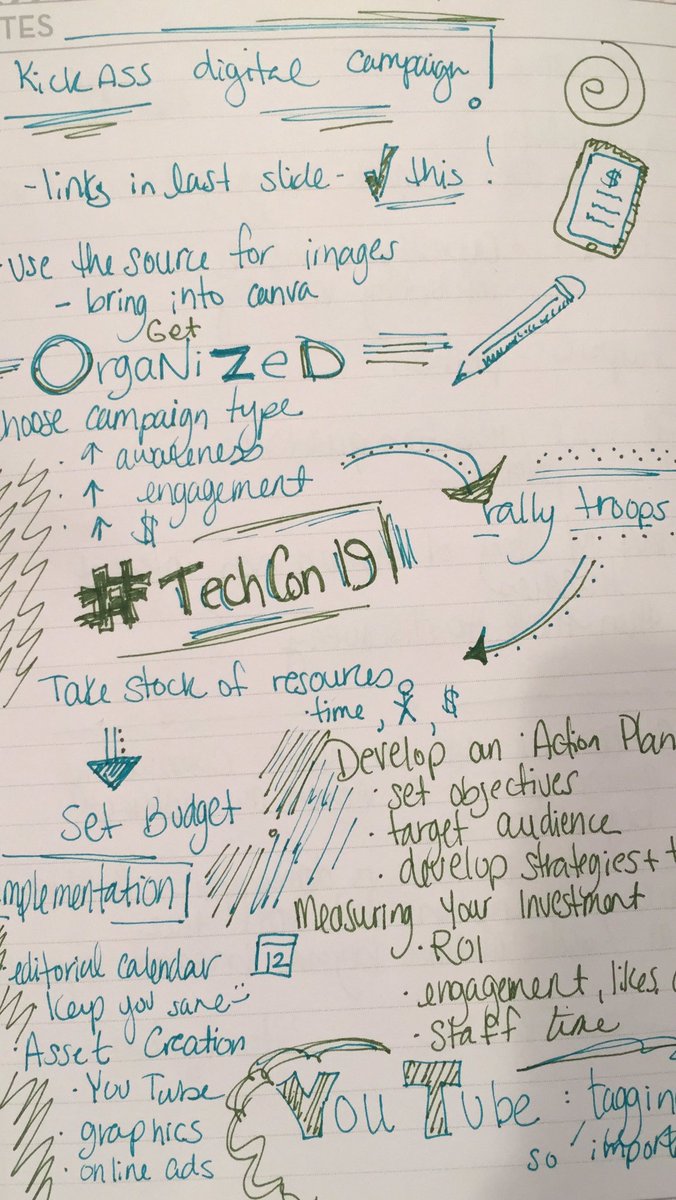 TES
KickASS digital campaign!
-links in last slide- ✓ this !
· Use the source for images
- bring into canva
Get
OrgaNizeD
hoose campaign type
· ↑ awareness
· ↑ engagement
· ↑ $
rally troops
#TechCon19
Take stock of resources
· time, , $
Set Budget
Develop an Action Plan
· set objectives
· target audience
· develop strategies + t
Implementation
Measuring Your Investment
· ROI
· engagement, likes,
· staff time
editorial calendar 12
keep you sane
· Asset Creation
· YouTube
· graphics
· online ads
YouTube : taggin
so import
$